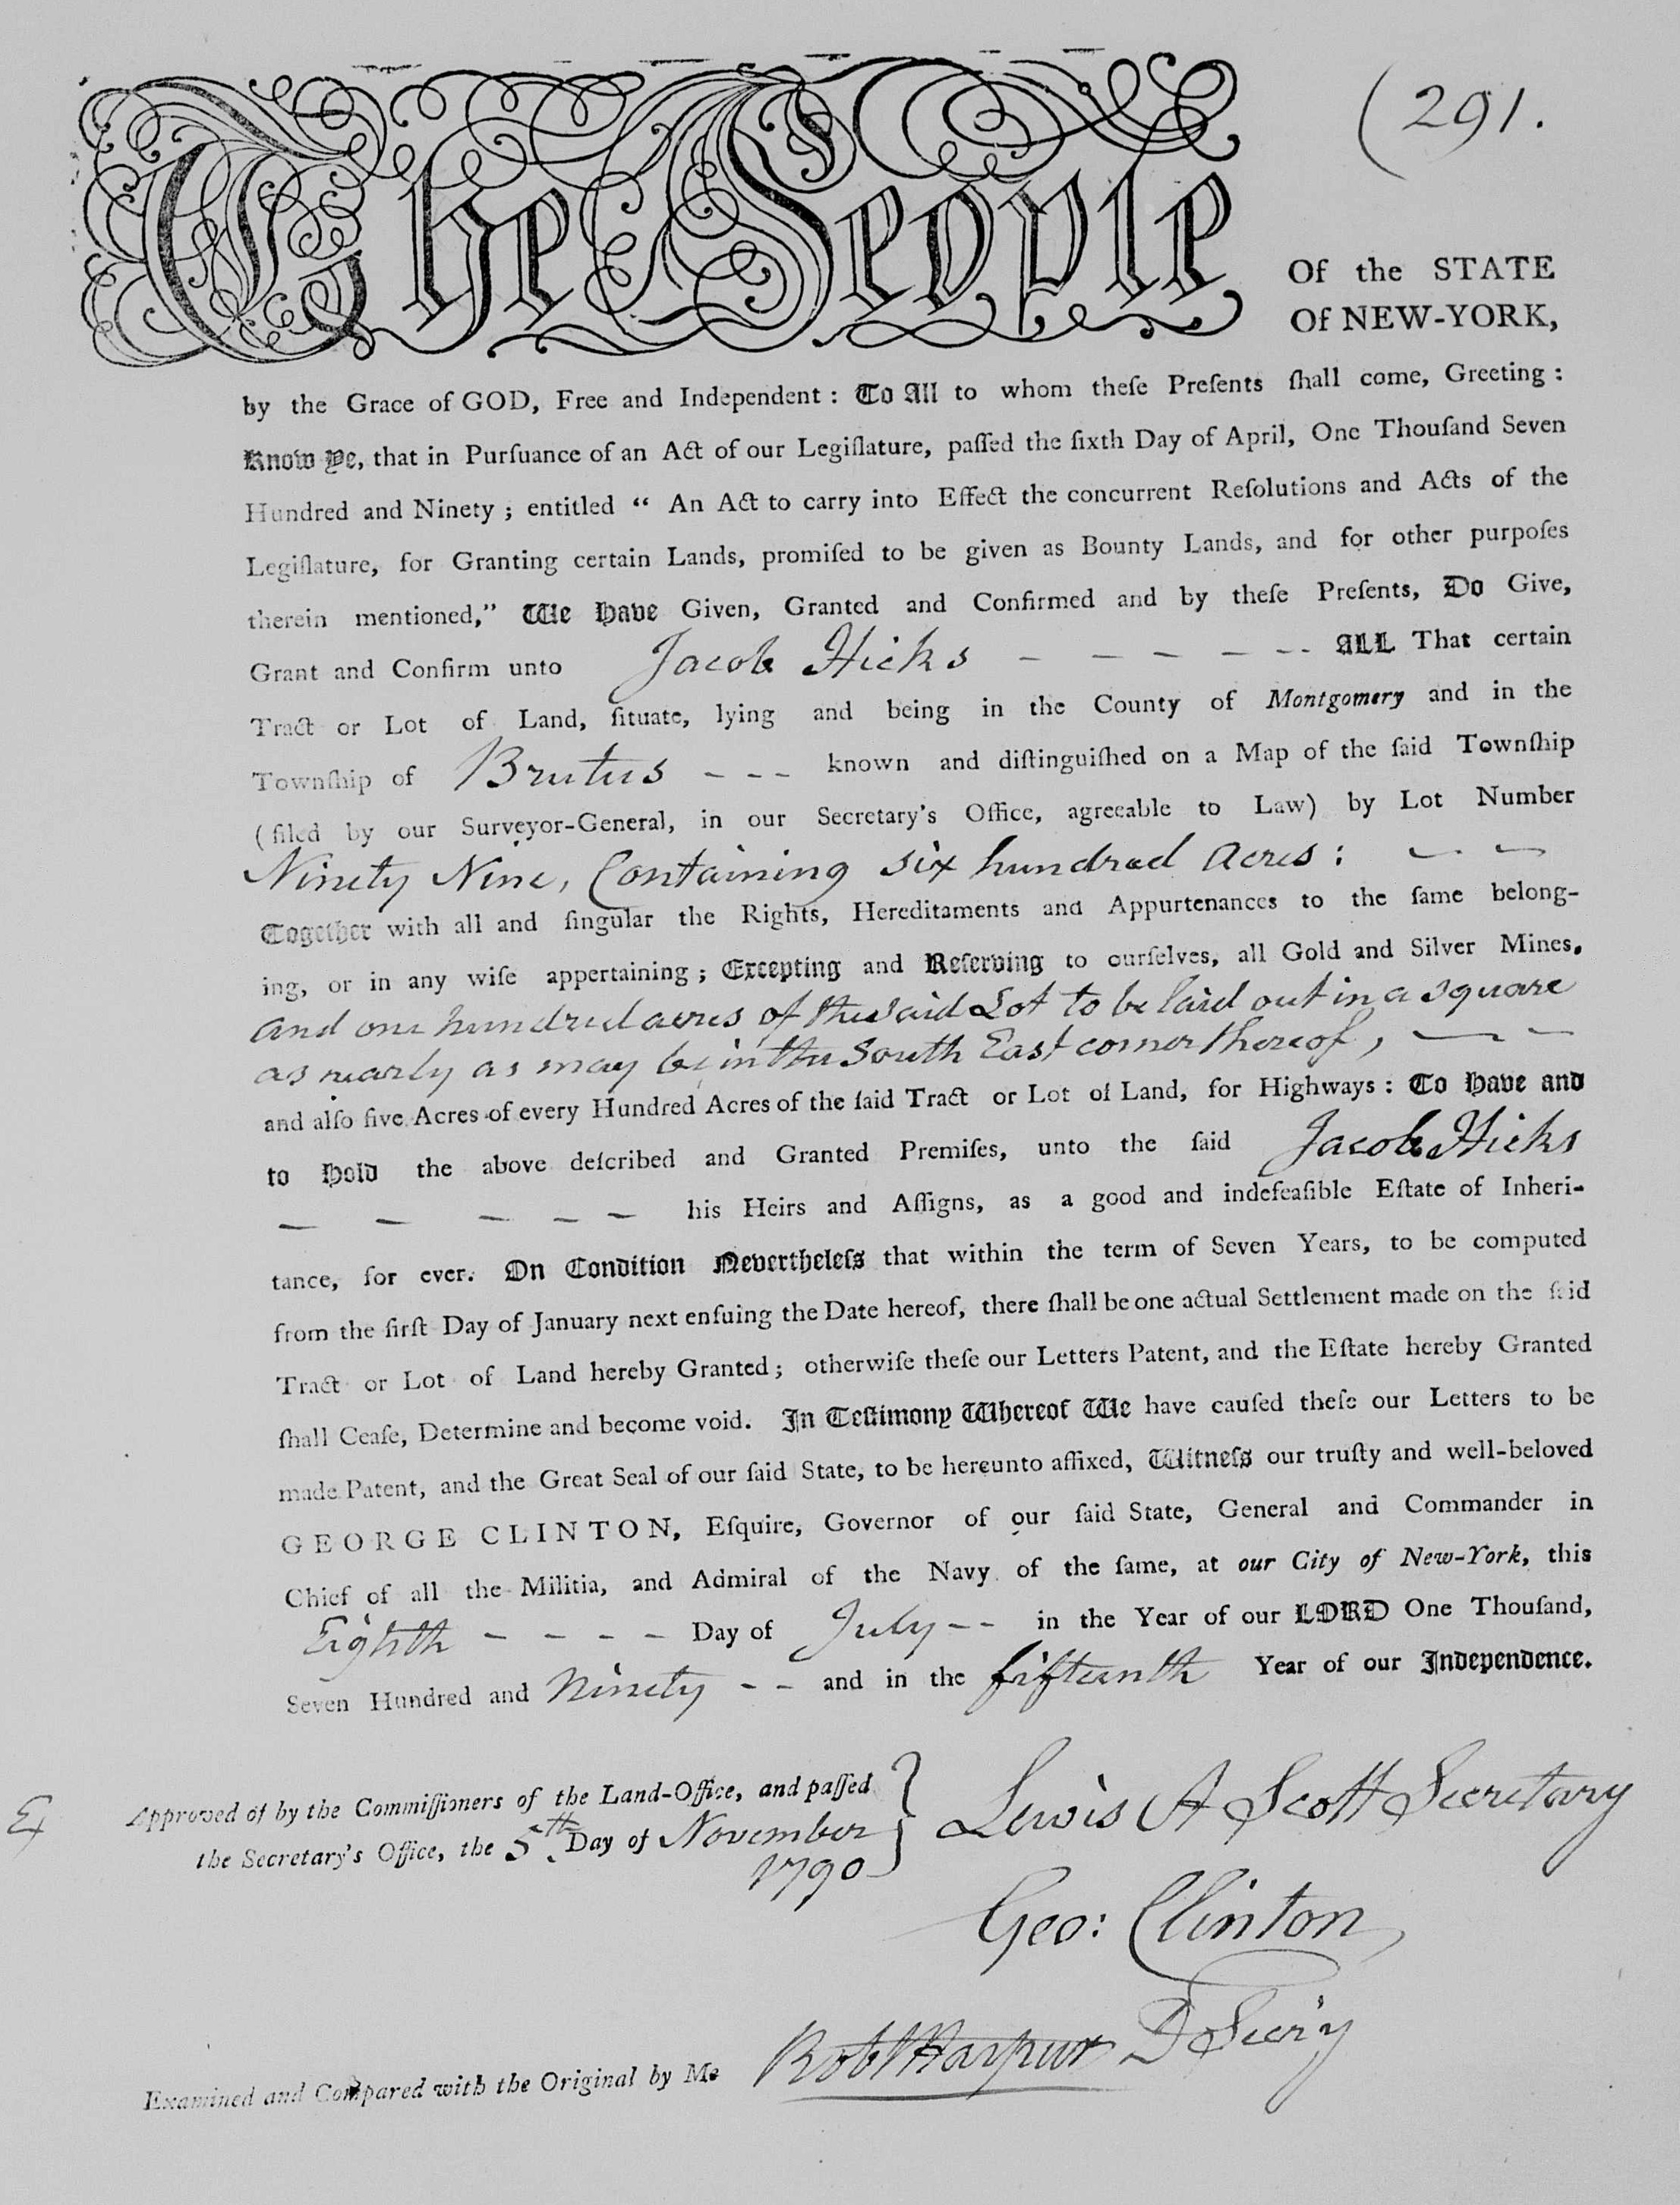 (291.
The People
Of the STATE
Of NEW-YORK,
by the Grace of GOD, Free and Independent : To All to whom theſe Preſents ſhall come, Greeting :
Know Ye, that in Purſuance of an Act of our Legiſlature, paſſed the ſixth Day of April, One Thouſand Seven
Hundred and Ninety ; entitled “ An Act to carry into Effect the concurrent Reſolutions and Acts of the
Legiſlature, for Granting certain Lands, promiſed to be given as Bounty Lands, and for other purpoſes
therein mentioned,” We Have Given, Granted and Confirmed and by theſe Preſents, Do Give,
Grant and Confirm unto Jacob Hicks – – – – – – ALL That certain
Tract or Lot of Land, ſituate, lying and being in the County of Montgomery and in the
Townſhip of Brutus – – – known and diſtinguiſhed on a Map of the ſaid Townſhip
(filed by our Surveyor-General, in our Secretary’s Office, agreeable to Law) by Lot Number
Ninety Nine, Containing six hundred acres : – –
Together with all and ſingular the Rights, Hereditaments and Appurtenances to the ſame belong-
ing, or in any wiſe appertaining ; Excepting and Reſerving to ourſelves, all Gold and Silver Mines.
and one hundred acres of the said Lot to be laid out in a square
as nearly as may be in the South East corner thereof, – –
and alſo five Acres of every Hundred Acres of the ſaid Tract or Lot of Land, for Highways : To Have and
to Hold the above deſcribed and Granted Premiſes, unto the ſaid Jacob Hicks
– – – – – his Heirs and Aſſigns, as a good and indefeaſible Eſtate of Inheri-
tance, for ever. On Condition Nevertheleſs that within the term of Seven Years, to be computed
from the firſt Day of January next enſuing the Date hereof, there ſhall be one actual Settlement made on the ſaid
Tract or Lot of Land hereby Granted ; otherwiſe theſe our Letters Patent, and the Eſtate hereby Granted
ſhall Ceaſe, Determine and become void. In Teſtimony Whereof We have cauſed theſe our Letters to be
made Patent, and the Great Seal of our ſaid State, to be hereunto affixed, Witneſs our truſty and well-beloved
GEORGE CLINTON, Eſquire, Governor of our ſaid State, General and Commander in
Chief of all the Militia, and Admiral of the Navy of the ſame, at our City of New-York, this
Eighth – – – – Day of July – – in the Year of our LORD One Thouſand,
Seven Hundred and Ninety – – and in the fifteenth Year of our Independence.
Approved of by the Commiſſioners of the Land-Office, and paſſed
the Secretary’s Office, the 5th Day of November
1790
Lewis A Scott Secretary
Geo: Clinton
Examined and Compared with the Original by Me Robt Harpur D Secry